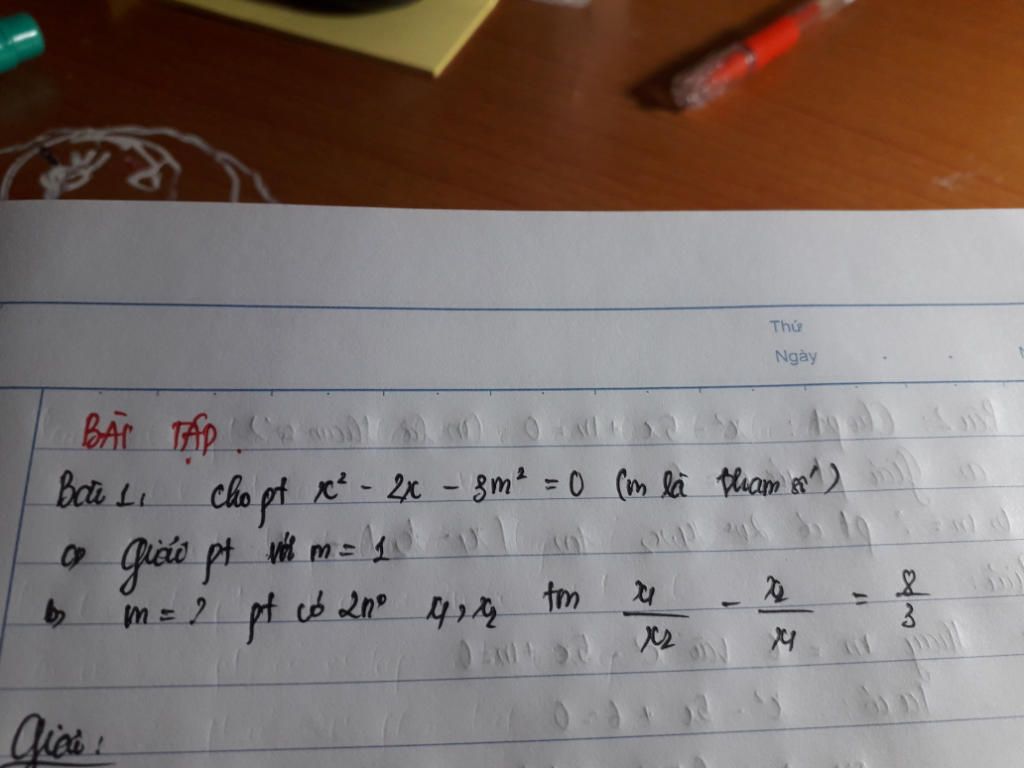 Thứ
Ngày
BÀI TẬP.
Bài 1. Cho pt x² - 2x - 3m² = 0 (m là tham số)
a) Giải pt với m = 1
b) m = ? pt có 2n° x₁, x₂ tm x₁/x₂ - x₂/x₁ = 8/3
Giải: